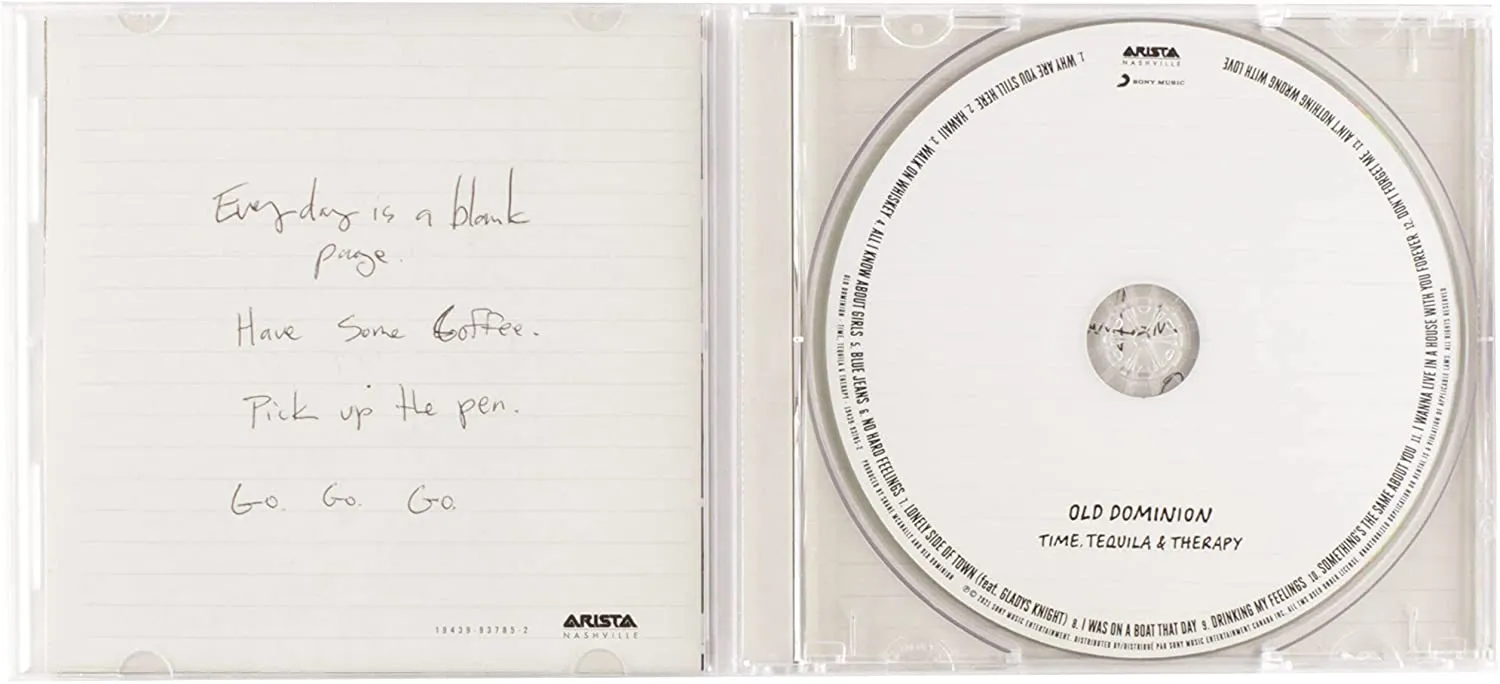 Everyday is a blank
page.
Have Some Coffee.
Pick up the pen.
Go. Go. Go.
19439-93785-2
ARISTA
NASHVILLE
ARISTA
NASHVILLE
SONY MUSIC
1. WHY ARE YOU STILL HERE 2. HAWAII 3. WALK ON WHISKEY 4. ALL I KNOW ABOUT GIRLS 5. BLUE JEANS 6. NO HARD FEELINGS 7. LONELY SIDE OF TOWN (feat. GLADYS KNIGHT) 8. I WAS ON A BOAT THAT DAY 9. DRINKING MY FEELINGS 10. SOMETHING'S THE SAME ABOUT YOU 11. I WANNA LIVE IN A HOUSE WITH YOU FOREVER 12. DON'T FORGET ME 13. AIN'T NOTHING WRONG WITH LOVE
OLD DOMINION
TIME, TEQUILA & THERAPY
OLD DOMINION · TIME, TEQUILA & THERAPY · 19439-93785-2 PRODUCED BY SHANE MCANALLY AND OLD DOMINION
℗© 2021 SONY MUSIC ENTERTAINMENT. DISTRIBUTED BY/DISTRIBUÉ PAR SONY MUSIC ENTERTAINMENT CANADA INC. ALL TMS USED UNDER LICENSE. UNAUTHORIZED DUPLICATION OR RENTAL IS A VIOLATION OF APPLICABLE LAWS. ALL RIGHTS RESERVED